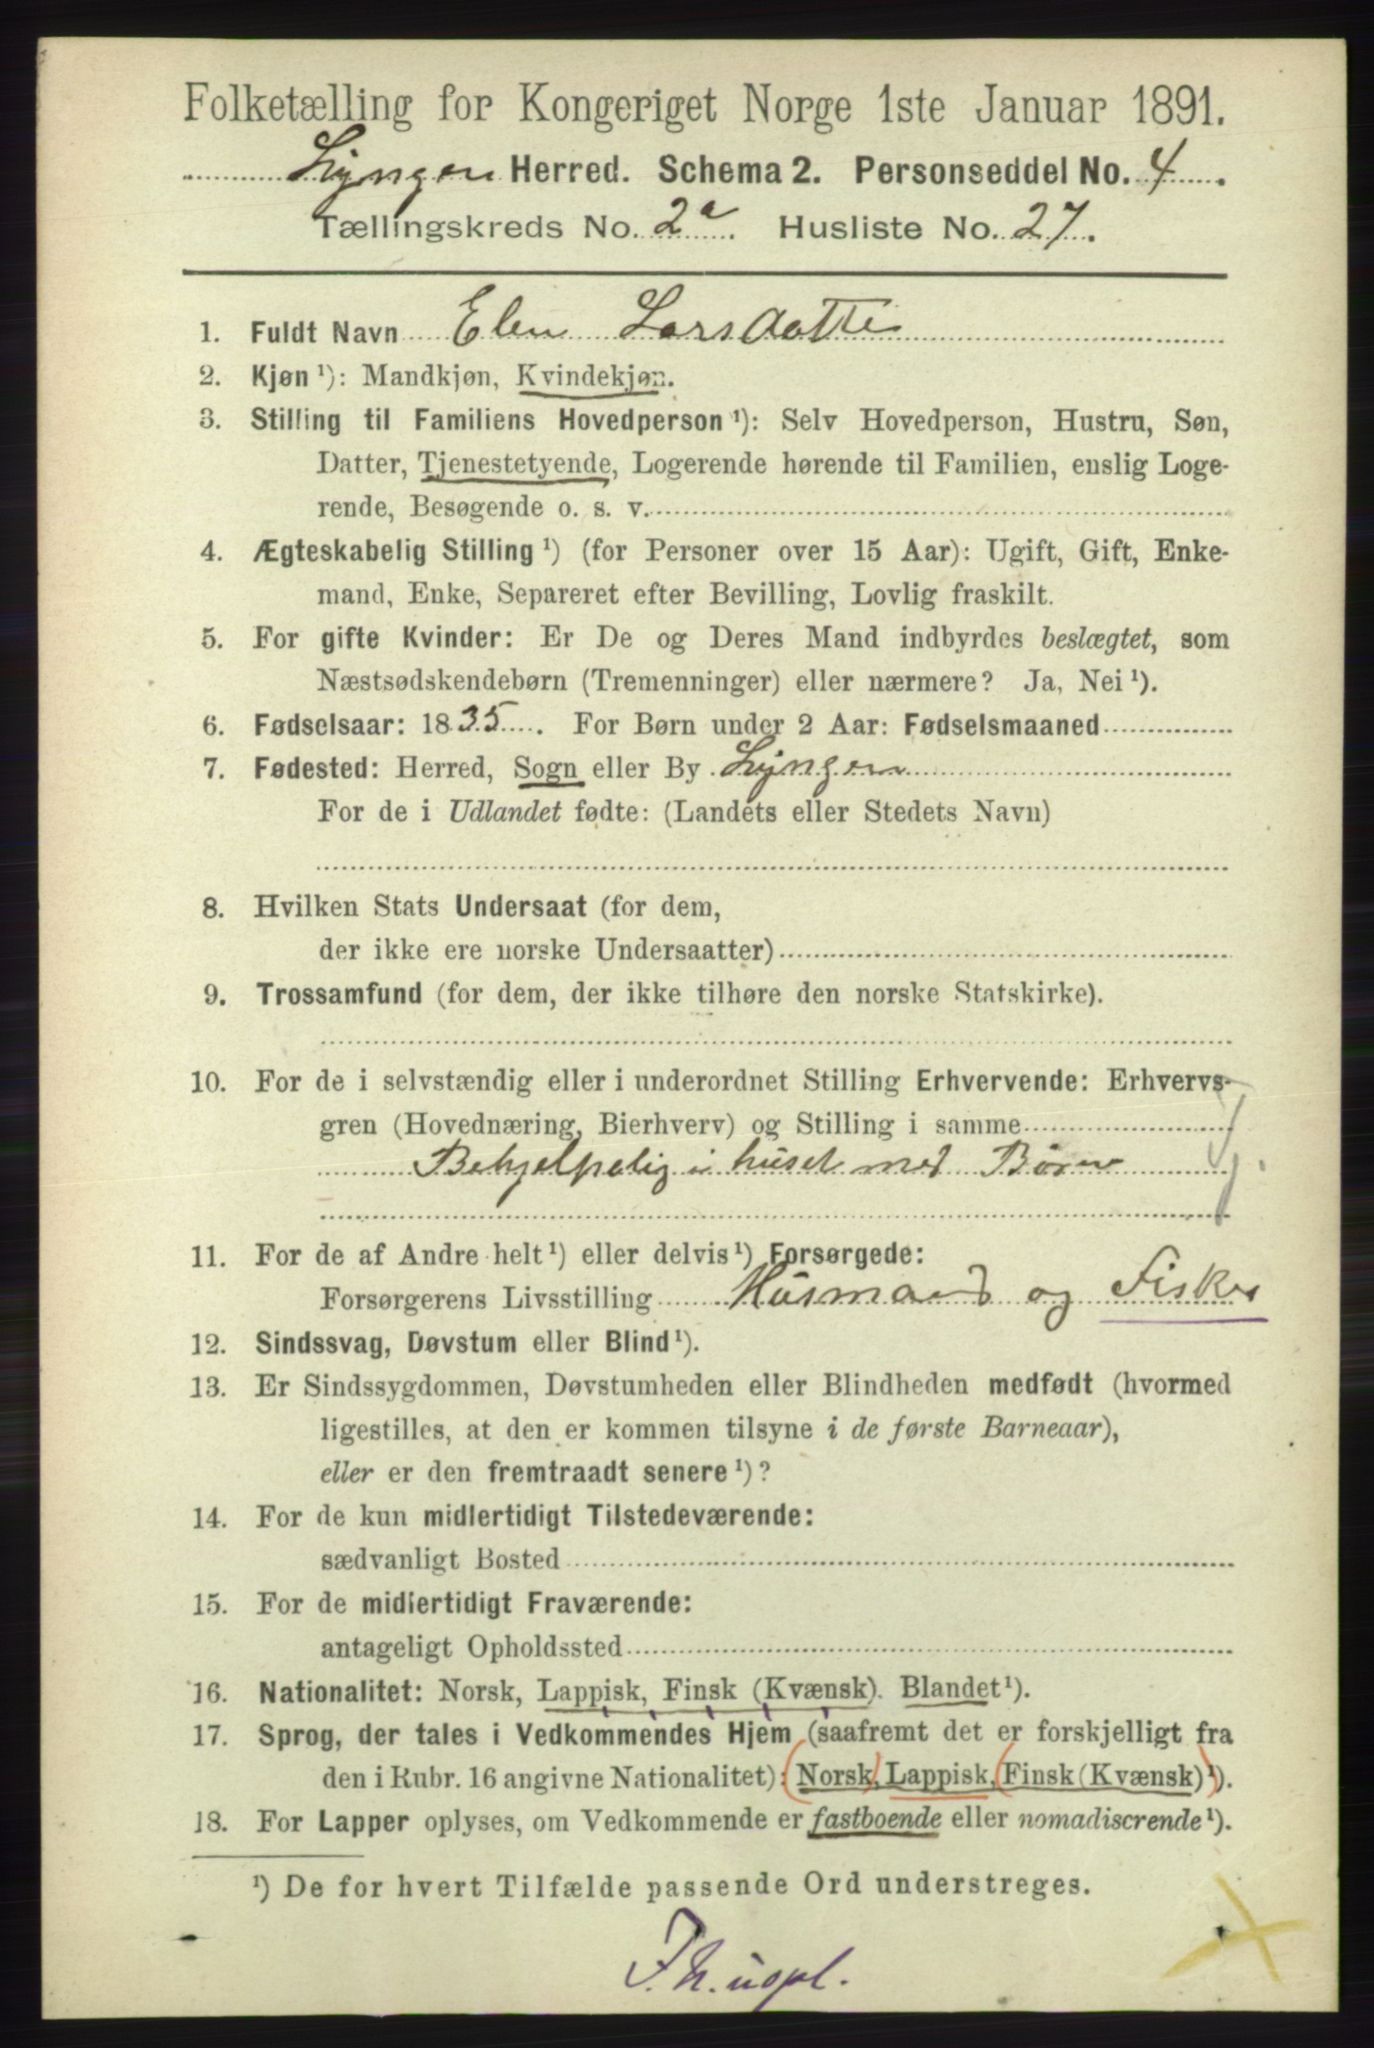 Folketælling for Kongeriget Norge 1ste Januar 1891.
Lyngen Herred. Schema 2. Personseddel No. 4.
Tællingskreds No. 2a. Husliste No. 27.
1. Fuldt Navn Elen Larsdatter
2. Kjøn ¹): Mandkjøn, Kvindekjøn.
3. Stilling til Familiens Hovedperson ¹): Selv Hovedperson, Hustru, Søn,
Datter, Tjenestetyende, Logerende hørende til Familien, enslig Loge-
rende, Besøgende o. s. v.
4. Ægteskabelig Stilling ¹) (for Personer over 15 Aar): Ugift, Gift, Enke-
mand, Enke, Separeret efter Bevilling, Lovlig fraskilt.
5. For gifte Kvinder: Er De og Deres Mand indbyrdes beslægtet, som
Næstsødskendebørn (Tremenninger) eller nærmere? Ja, Nei ¹).
6. Fødselsaar: 1835. For Børn under 2 Aar: Fødselsmaaned
7. Fødested: Herred, Sogn eller By Lyngen
For de i Udlandet fødte: (Landets eller Stedets Navn)
8. Hvilken Stats Undersaat (for dem,
der ikke ere norske Undersaatter)
9. Trossamfund (for dem, der ikke tilhøre den norske Statskirke).
10. For de i selvstændig eller i underordnet Stilling Erhvervende: Erhvervs-
gren (Hovednæring, Bierhverv) og Stilling i samme
Behjelpelig i huset med Børn
11. For de af Andre helt ¹) eller delvis ¹) Forsørgede:
Forsørgerens Livsstilling Husmand og Fisker
12. Sindssvag, Døvstum eller Blind ¹).
13. Er Sindssygdommen, Døvstumheden eller Blindheden medfødt (hvormed
ligestilles, at den er kommen tilsyne i de første Barneaar),
eller er den fremtraadt senere ¹)?
14. For de kun midlertidigt Tilstedeværende:
sædvanligt Bosted
15. For de midlertidigt Fraværende:
antageligt Opholdssted
16. Nationalitet: Norsk, Lappisk, Finsk (Kvænsk). Blandet ¹).
17. Sprog, der tales i Vedkommendes Hjem (saafremt det er forskjelligt fra
den i Rubr. 16 angivne Nationalitet): (Norsk), Lappisk, (Finsk (Kvænsk) ¹)).
18. For Lapper oplyses, om Vedkommende er fastboende eller nomadiserende ¹).
¹) De for hvert Tilfælde passende Ord understreges.